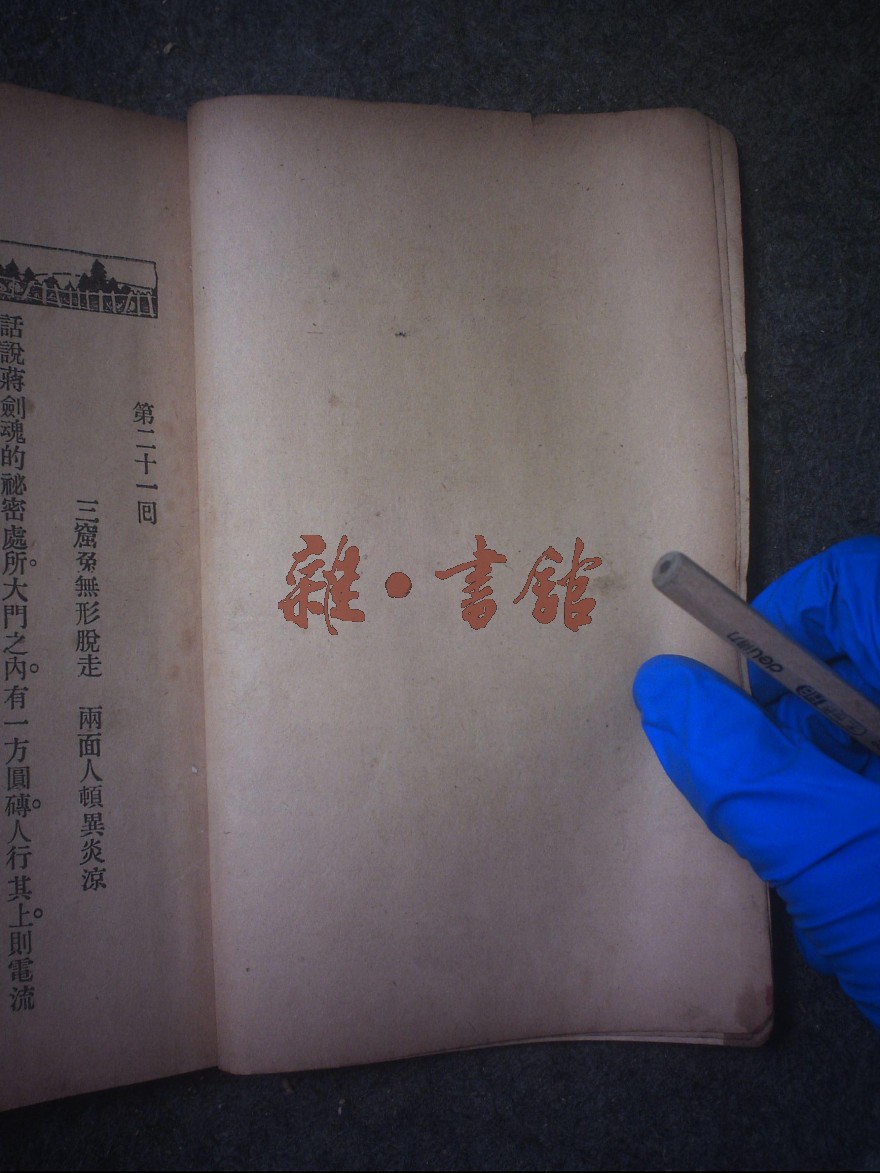 雜·書館
第二十一回
三窟無形脫走　兩面人頓異炎涼
話說蔣劍魂的祕密處所。大門之內。有一方圓磚。人行其上。則電流